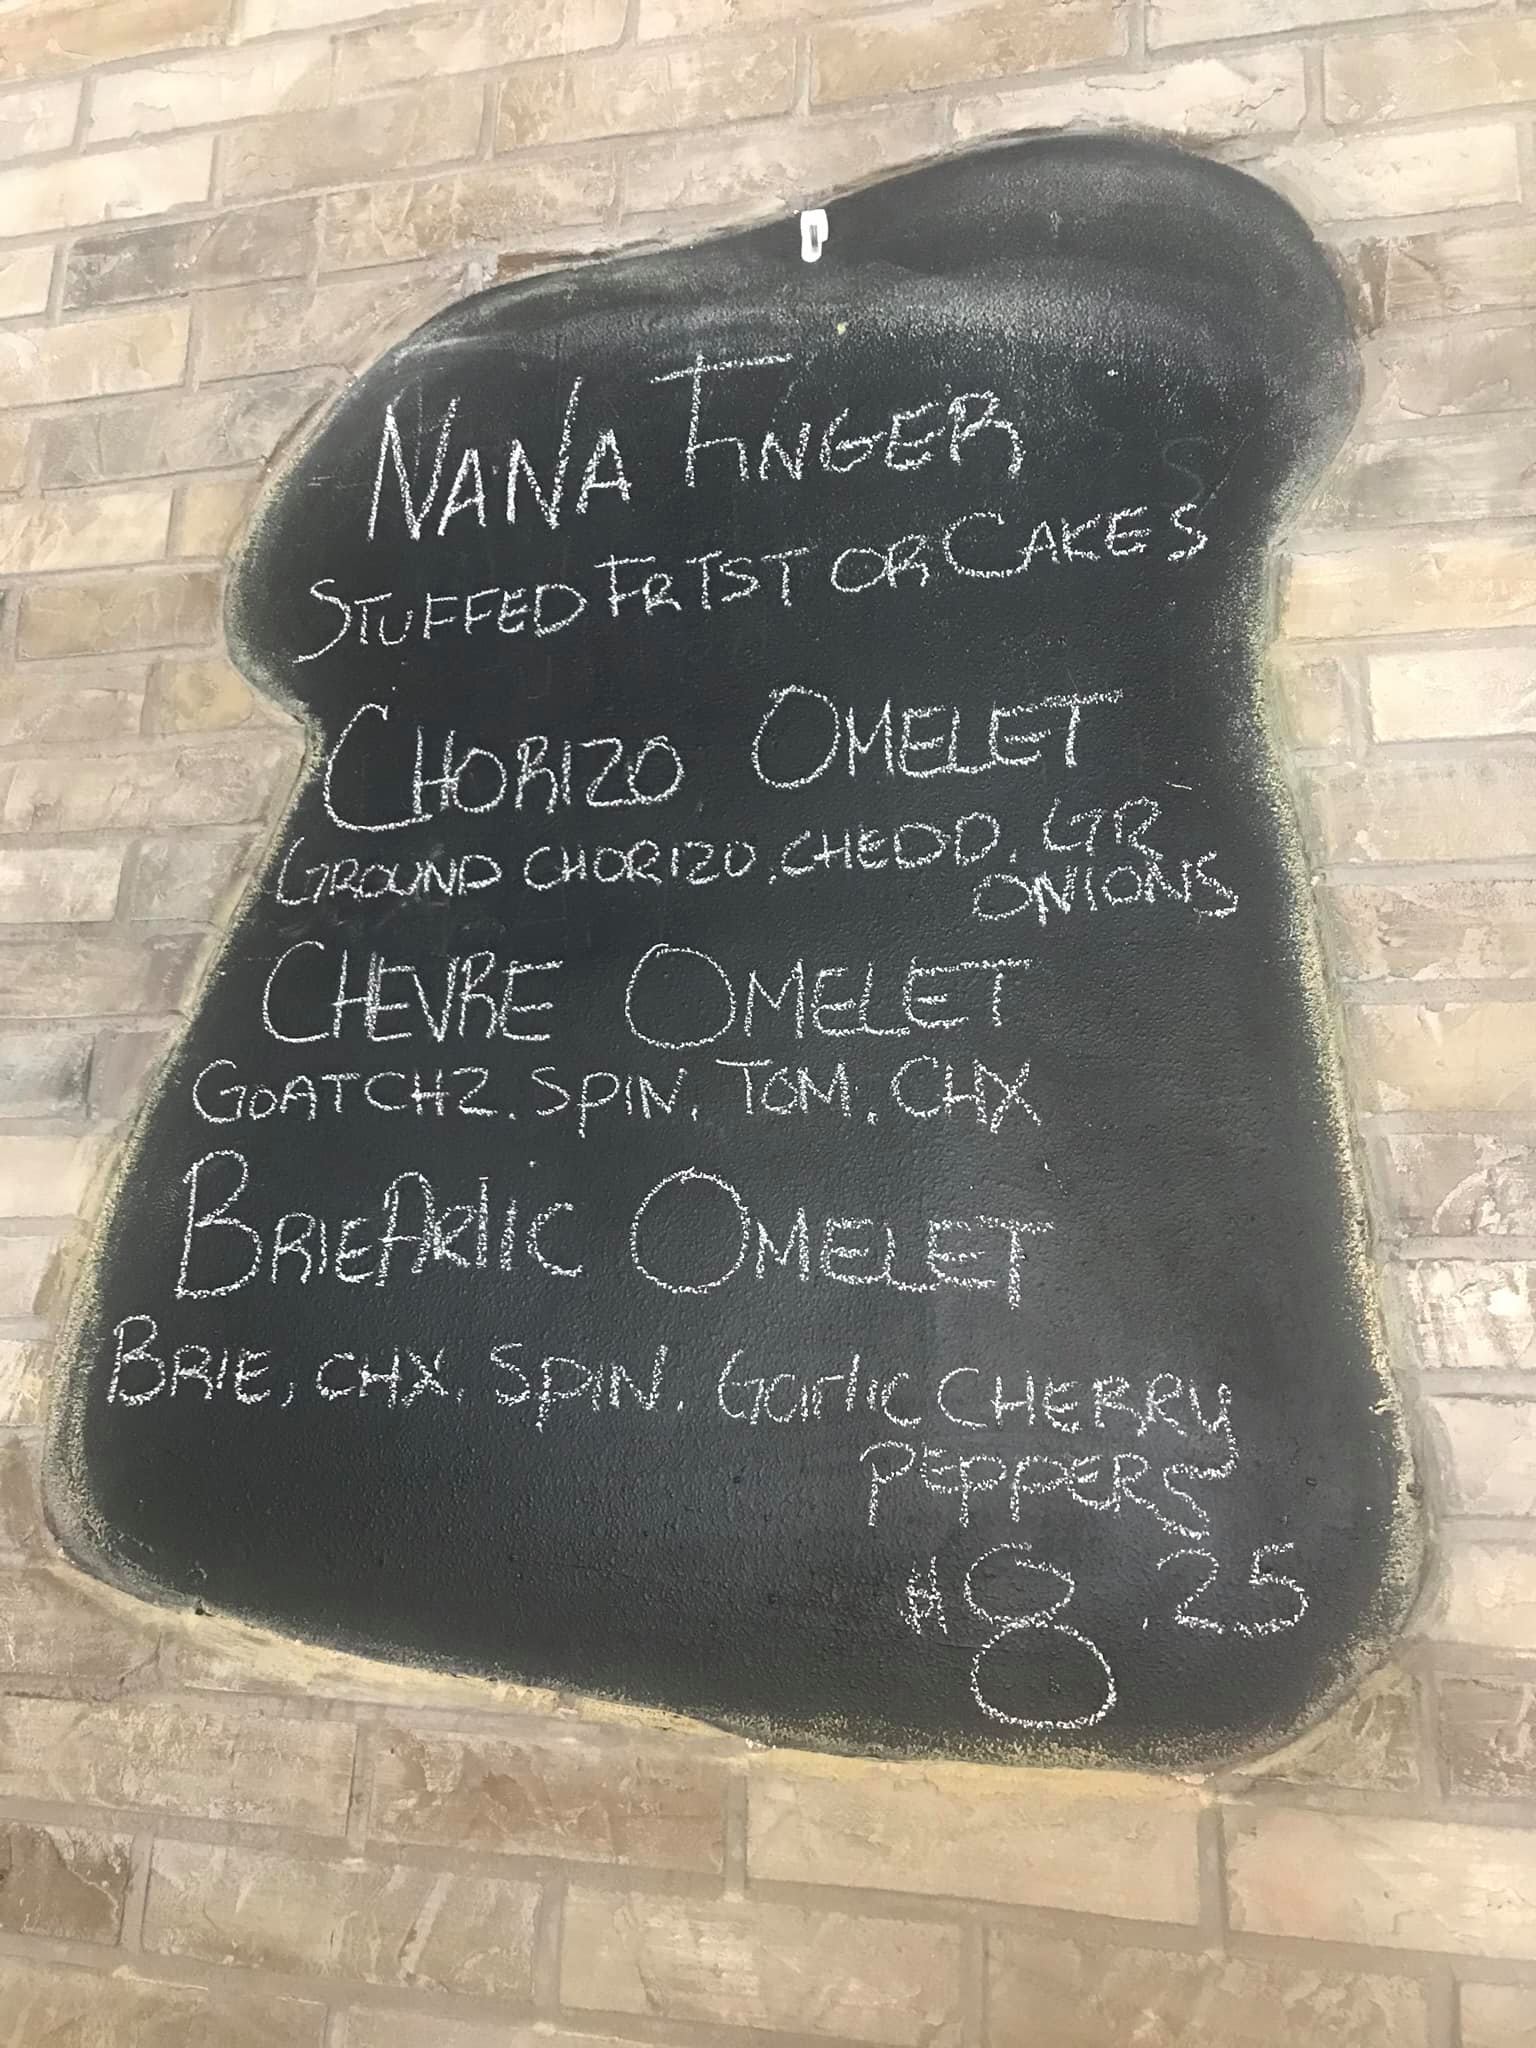 NANA FINGER
STUFFED FR TST OR CAKES
CHORIZO OMELET
GROUND CHORIZO, CHEDD. GR
ONIONS
CHEVRE OMELET
GOAT CHZ. SPIN, TOM, CHX
BRIEARlIC OMELET
BRIE, CHX, SPIN. Garlic CHERRY
PEPPERS
$8.25